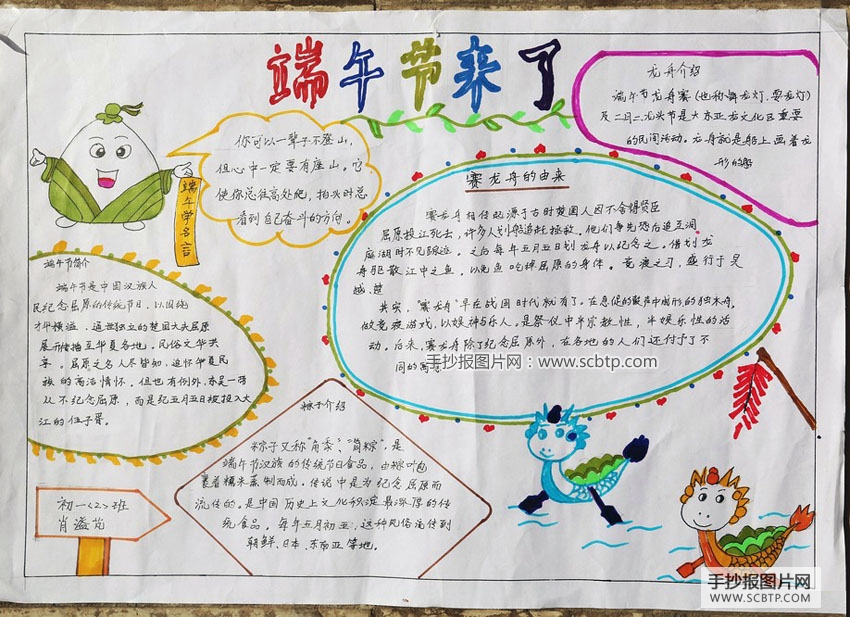 端午节来了
龙舟介绍
端午节龙舟赛(也称舞龙灯、耍龙灯)
及二月二龙头节是大东亚龙文化区重要
的民间活动。龙舟就是船上画着龙
形的船
你可以一辈子不登山,
但心中一定要有座山。它
使你总往高处爬,抬头时总
看到自己奋斗的方向。
端午学名言
赛龙舟的由来
赛龙舟相传起源于古时楚国人因不舍得贤臣
屈原投江死去,许多人划船追赶拯救。他们争先恐后追至洞
庭湖时不见踪迹。之后每年五月五日划龙舟以纪念之。借划龙
舟驱散江中之鱼,以免鱼吃掉屈原的身体。竞渡之习,盛行于吴
越、楚
其实,"赛龙舟"早在战国时代就有了。在急促的鼓声中刻形的独木舟,
做竞渡游戏,以娱神与乐人。是祭仪中半宗教性,半娱乐性的活
动。后来,赛龙舟除了纪念屈原外,在各地的人们还付予了不
同的寓意
手抄报图片网:www.scbtp.com
端午节简介
端午节是中国汉族人
民纪念屈原的传统节日,以围绕
才华横溢、遗世独立的楚国大夫屈原
展开传播至华夏各地。民俗文华共
享。屈原之名人尽皆知,追怀华夏民
族的高洁情怀。但也有例外,东吴一带
从不纪念屈原,而是纪五月五日被投入大
江的伍子胥。
粽子介绍
粽子又称"角黍"、"筒粽",是
端午节汉族的传统节日食品,由粽叶包
裹着糯米蒸制而成。传说中是为纪念屈原而
流传的。是中国历史上文化积淀最深厚的传
统食品。每年五月初五,这种风俗流传到
朝鲜、日本、东南亚等地。
初一<2>班
手抄报图片网
WWW.SCBTP.COM